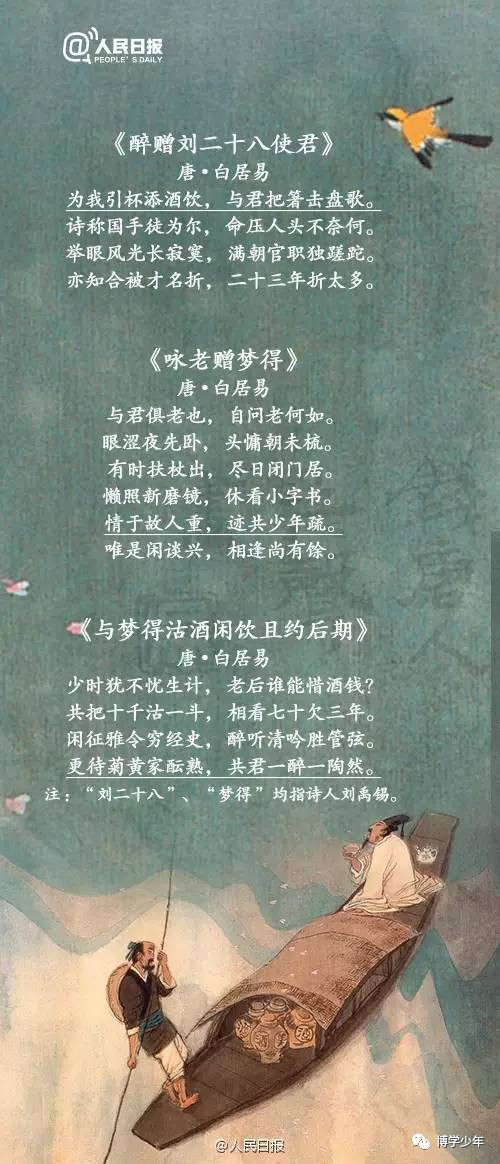 @人民日报
PEOPLE'S DAILY
《醉赠刘二十八使君》
唐·白居易
为我引杯添酒饮，与君把箸击盘歌。
诗称国手徒为尔，命压人头不奈何。
举眼风光长寂寞，满朝官职独蹉跎。
亦知合被才名折，二十三年折太多。
《咏老赠梦得》
唐·白居易
与君俱老也，自问老何如。
眼涩夜先卧，头慵朝未梳。
有时扶杖出，尽日闭门居。
懒照新磨镜，休看小字书。
情于故人重，迹共少年疏。
唯是闲谈兴，相逢尚有馀。
《与梦得沽酒闲饮且约后期》
唐·白居易
少时犹不忧生计，老后谁能惜酒钱？
共把十千沽一斗，相看七十欠三年。
闲征雅令穷经史，醉听清吟胜管弦。
更待菊黄家酝熟，共君一醉一陶然。
注：“刘二十八”、“梦得”均指诗人刘禹锡。
@人民日报
博学少年